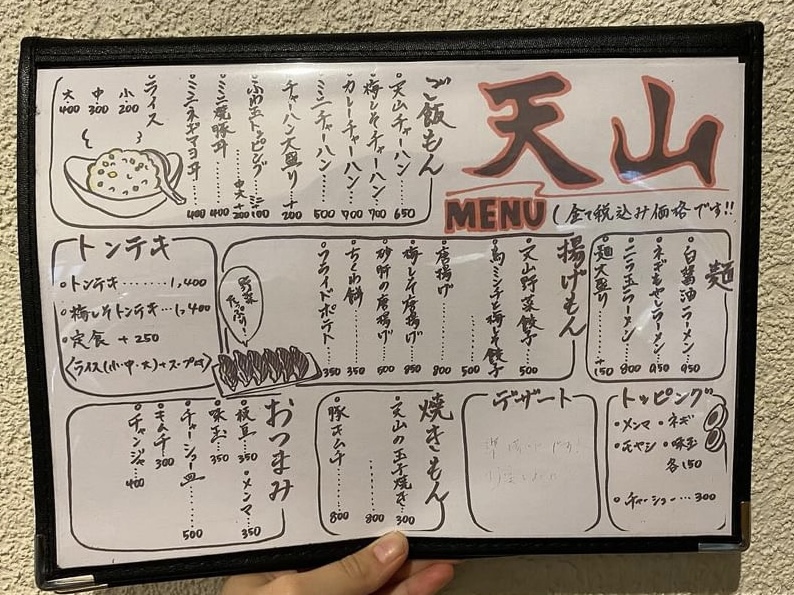 天山
MENU (全て税込み価格です!!
麺
・白醤油ラーメン……950
・ネギもやしラーメン……950
・ニラ玉ラーメン……800
・麺大盛り……+150
揚げもん
・天山野菜餃子……500
・鳥ミンチと梅しそ餃子……500
・唐揚げ……800
・梅しそ唐揚げ……850
・砂肝の唐揚げ……500
・ちくわ餅……350
・フライドポテト……350
野菜たっぷり
ご飯もん
・天山チャーハン……650
・梅しそチャーハン……700
・カレーチャーハン……700
・ミニチャーハン……500
チャーハン大盛り……+200
・ふわ玉トッピング……ミニ+100
中大+200
・ミニ焼豚丼……400
・ミニネギマヨ丼……400
・ライス
小 200
中 300
大 400
トンテキ
・トンテキ………1,400
・梅しそトンテキ…1,400
・定食 +250
(ライス(小・中・大)+スープ付)
トッピング
・メンマ ・ネギ
・モヤシ ・味玉
各150
・チャーシュー…300
デザート
焼きもん
・天山の玉子焼き…300
……800
・豚キムチ……800
おつまみ
・枝豆…350
・メンマ…350
・味玉…350
・チャーシュー皿……500
・キムチ…300
・チャンジャ…400